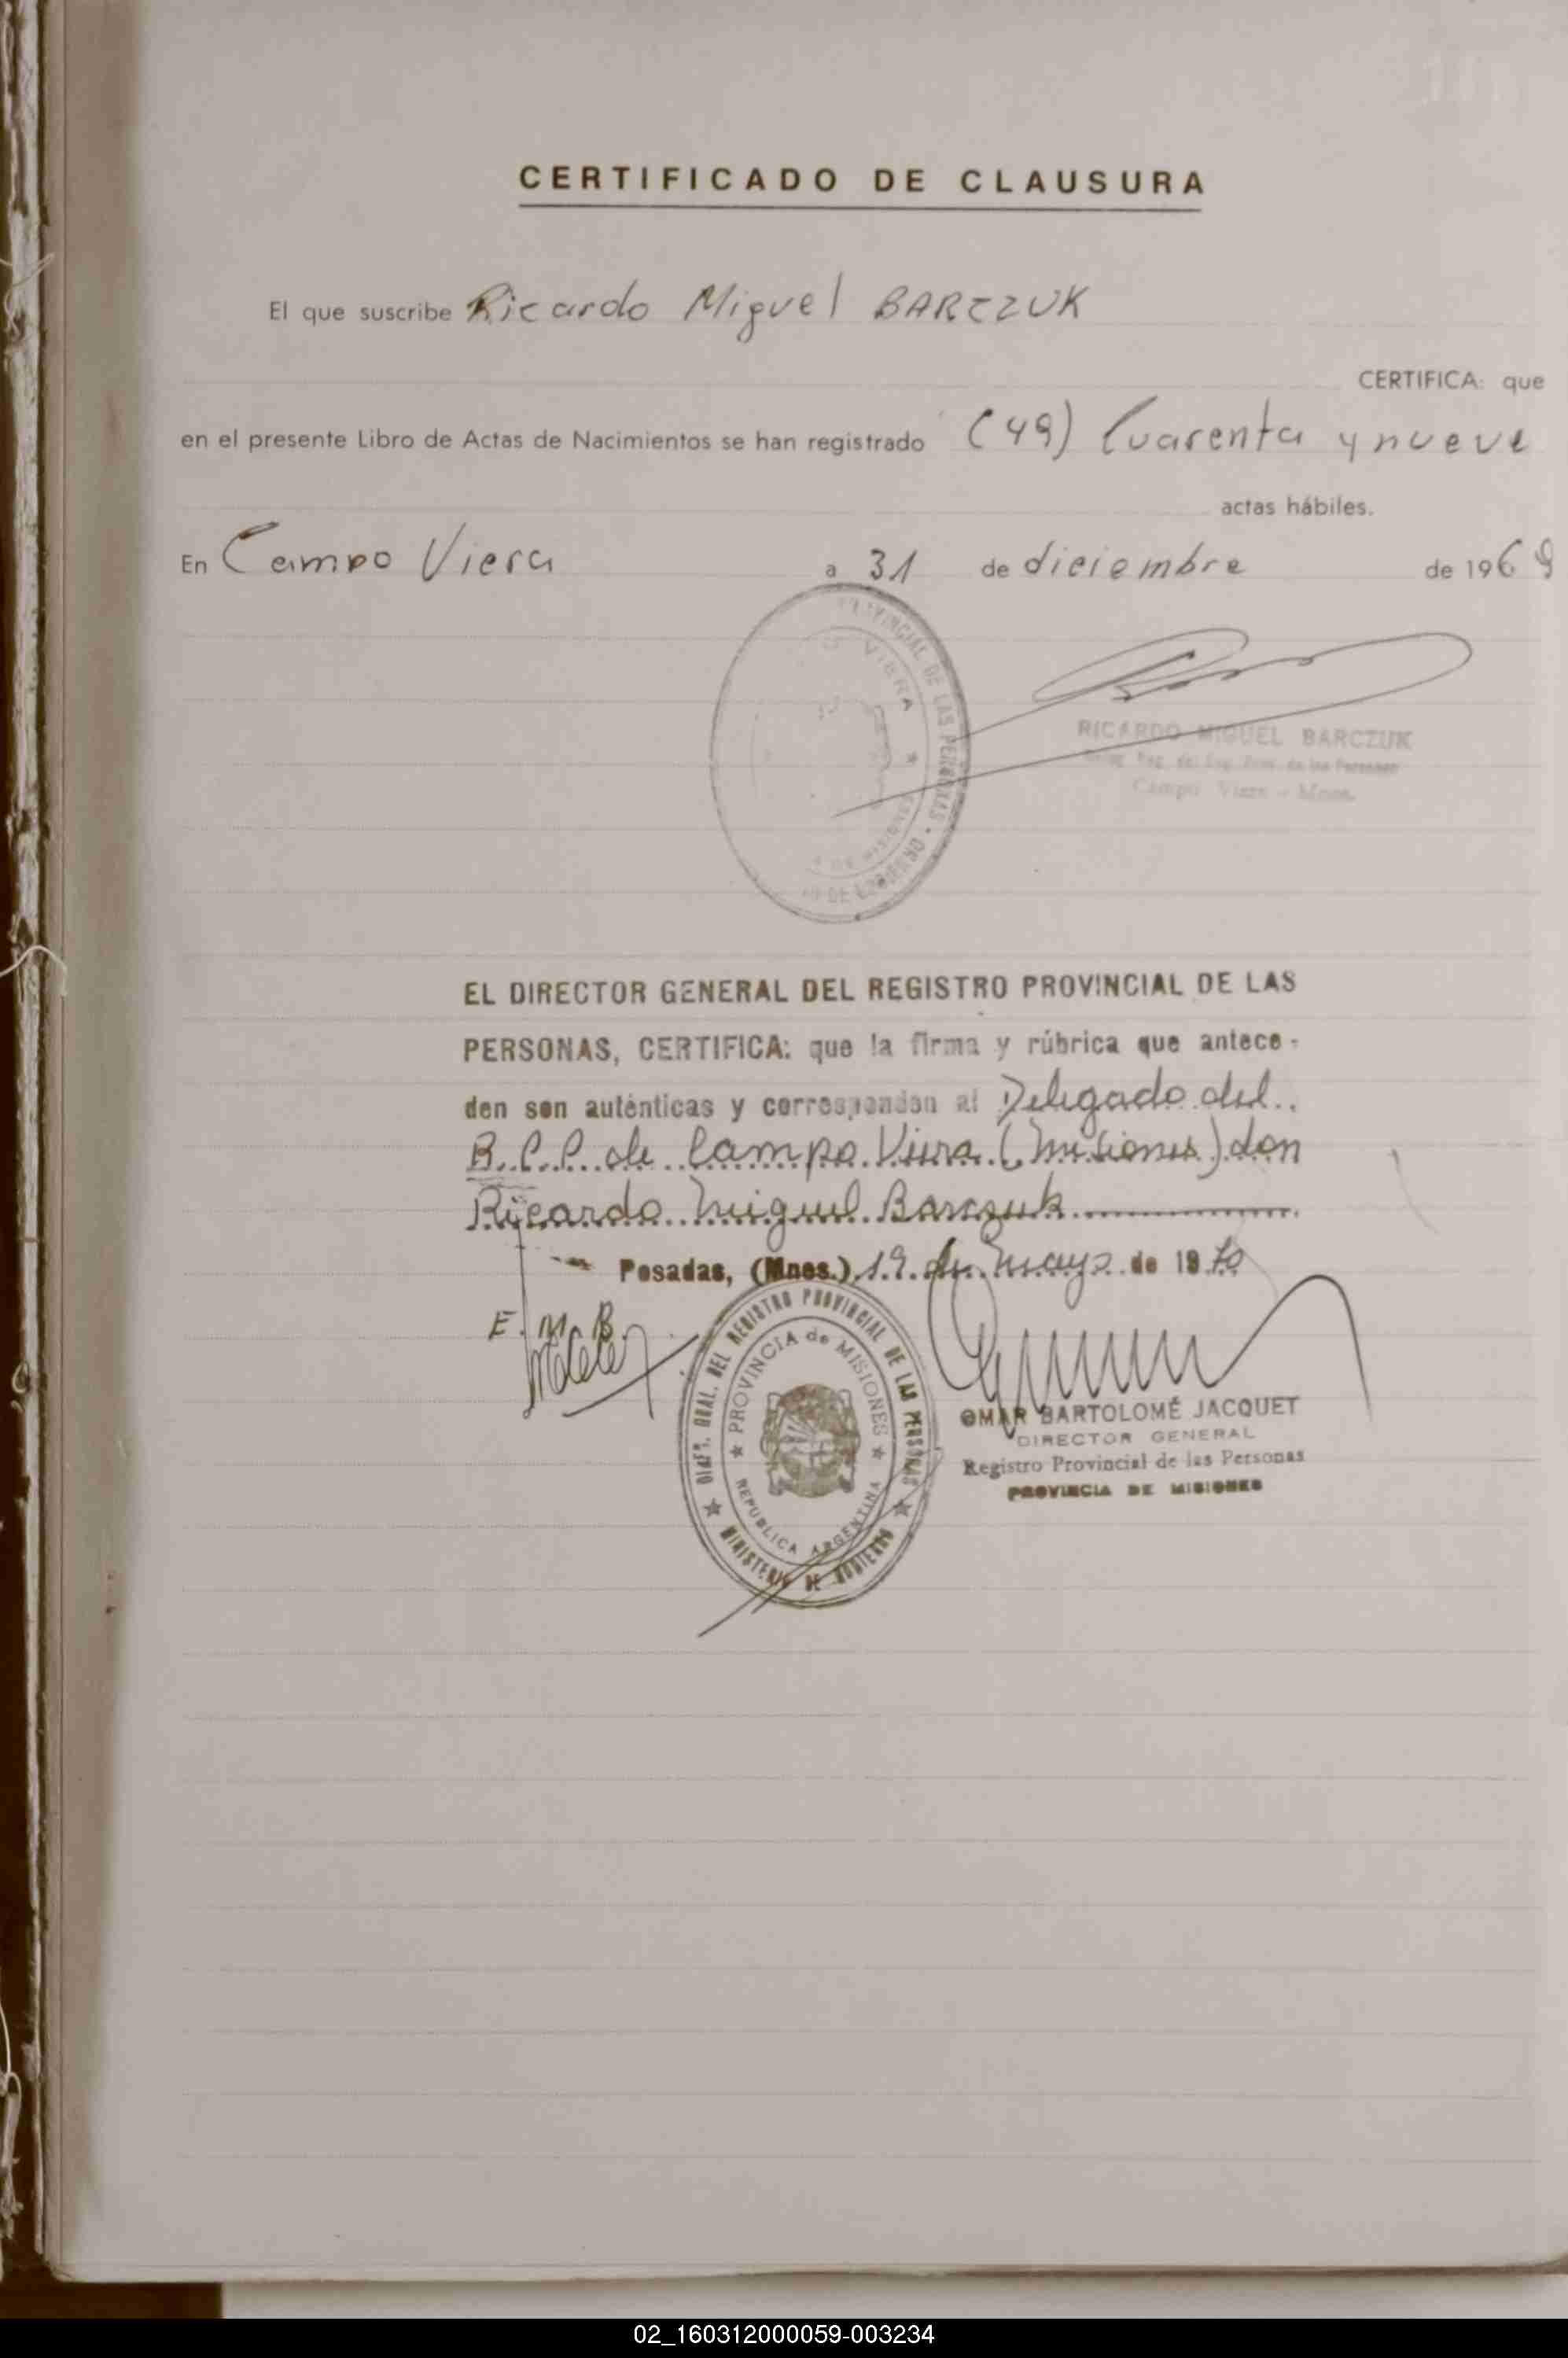 CERTIFICADO DE CLAUSURA
El que suscribe Ricardo Miguel BARCZUK
CERTIFICA: que
en el presente Libro de Actas de Nacimientos se han registrado (49) Cuarenta y nueve
actas hábiles.
En Campo Viera a 31 de diciembre de 1969
PROVINCIAL DE LAS PERSONAS
VIERA
RICARDO MIGUEL BARCZUK
Campo Viera - Mnes.
EL DIRECTOR GENERAL DEL REGISTRO PROVINCIAL DE LAS
PERSONAS, CERTIFICA: que la firma y rúbrica que antece-
den son auténticas y corresponden al Delegado del
R.P.P. de Campo Viera (Misiones) don
Ricardo Miguel Barczuk
Posadas, (Mnes.) 19 de mayo de 1970
E. M. B.
DIREC. GRAL. DEL REGISTRO PROVINCIAL DE LAS PERSONAS
PROVINCIA de MISIONES
REPUBLICA ARGENTINA
MINISTERIO DE GOBIERNO
OMAR BARTOLOMÉ JACQUET
DIRECTOR GENERAL
Registro Provincial de las Personas
PROVINCIA DE MISIONES
02_160312000059-003234